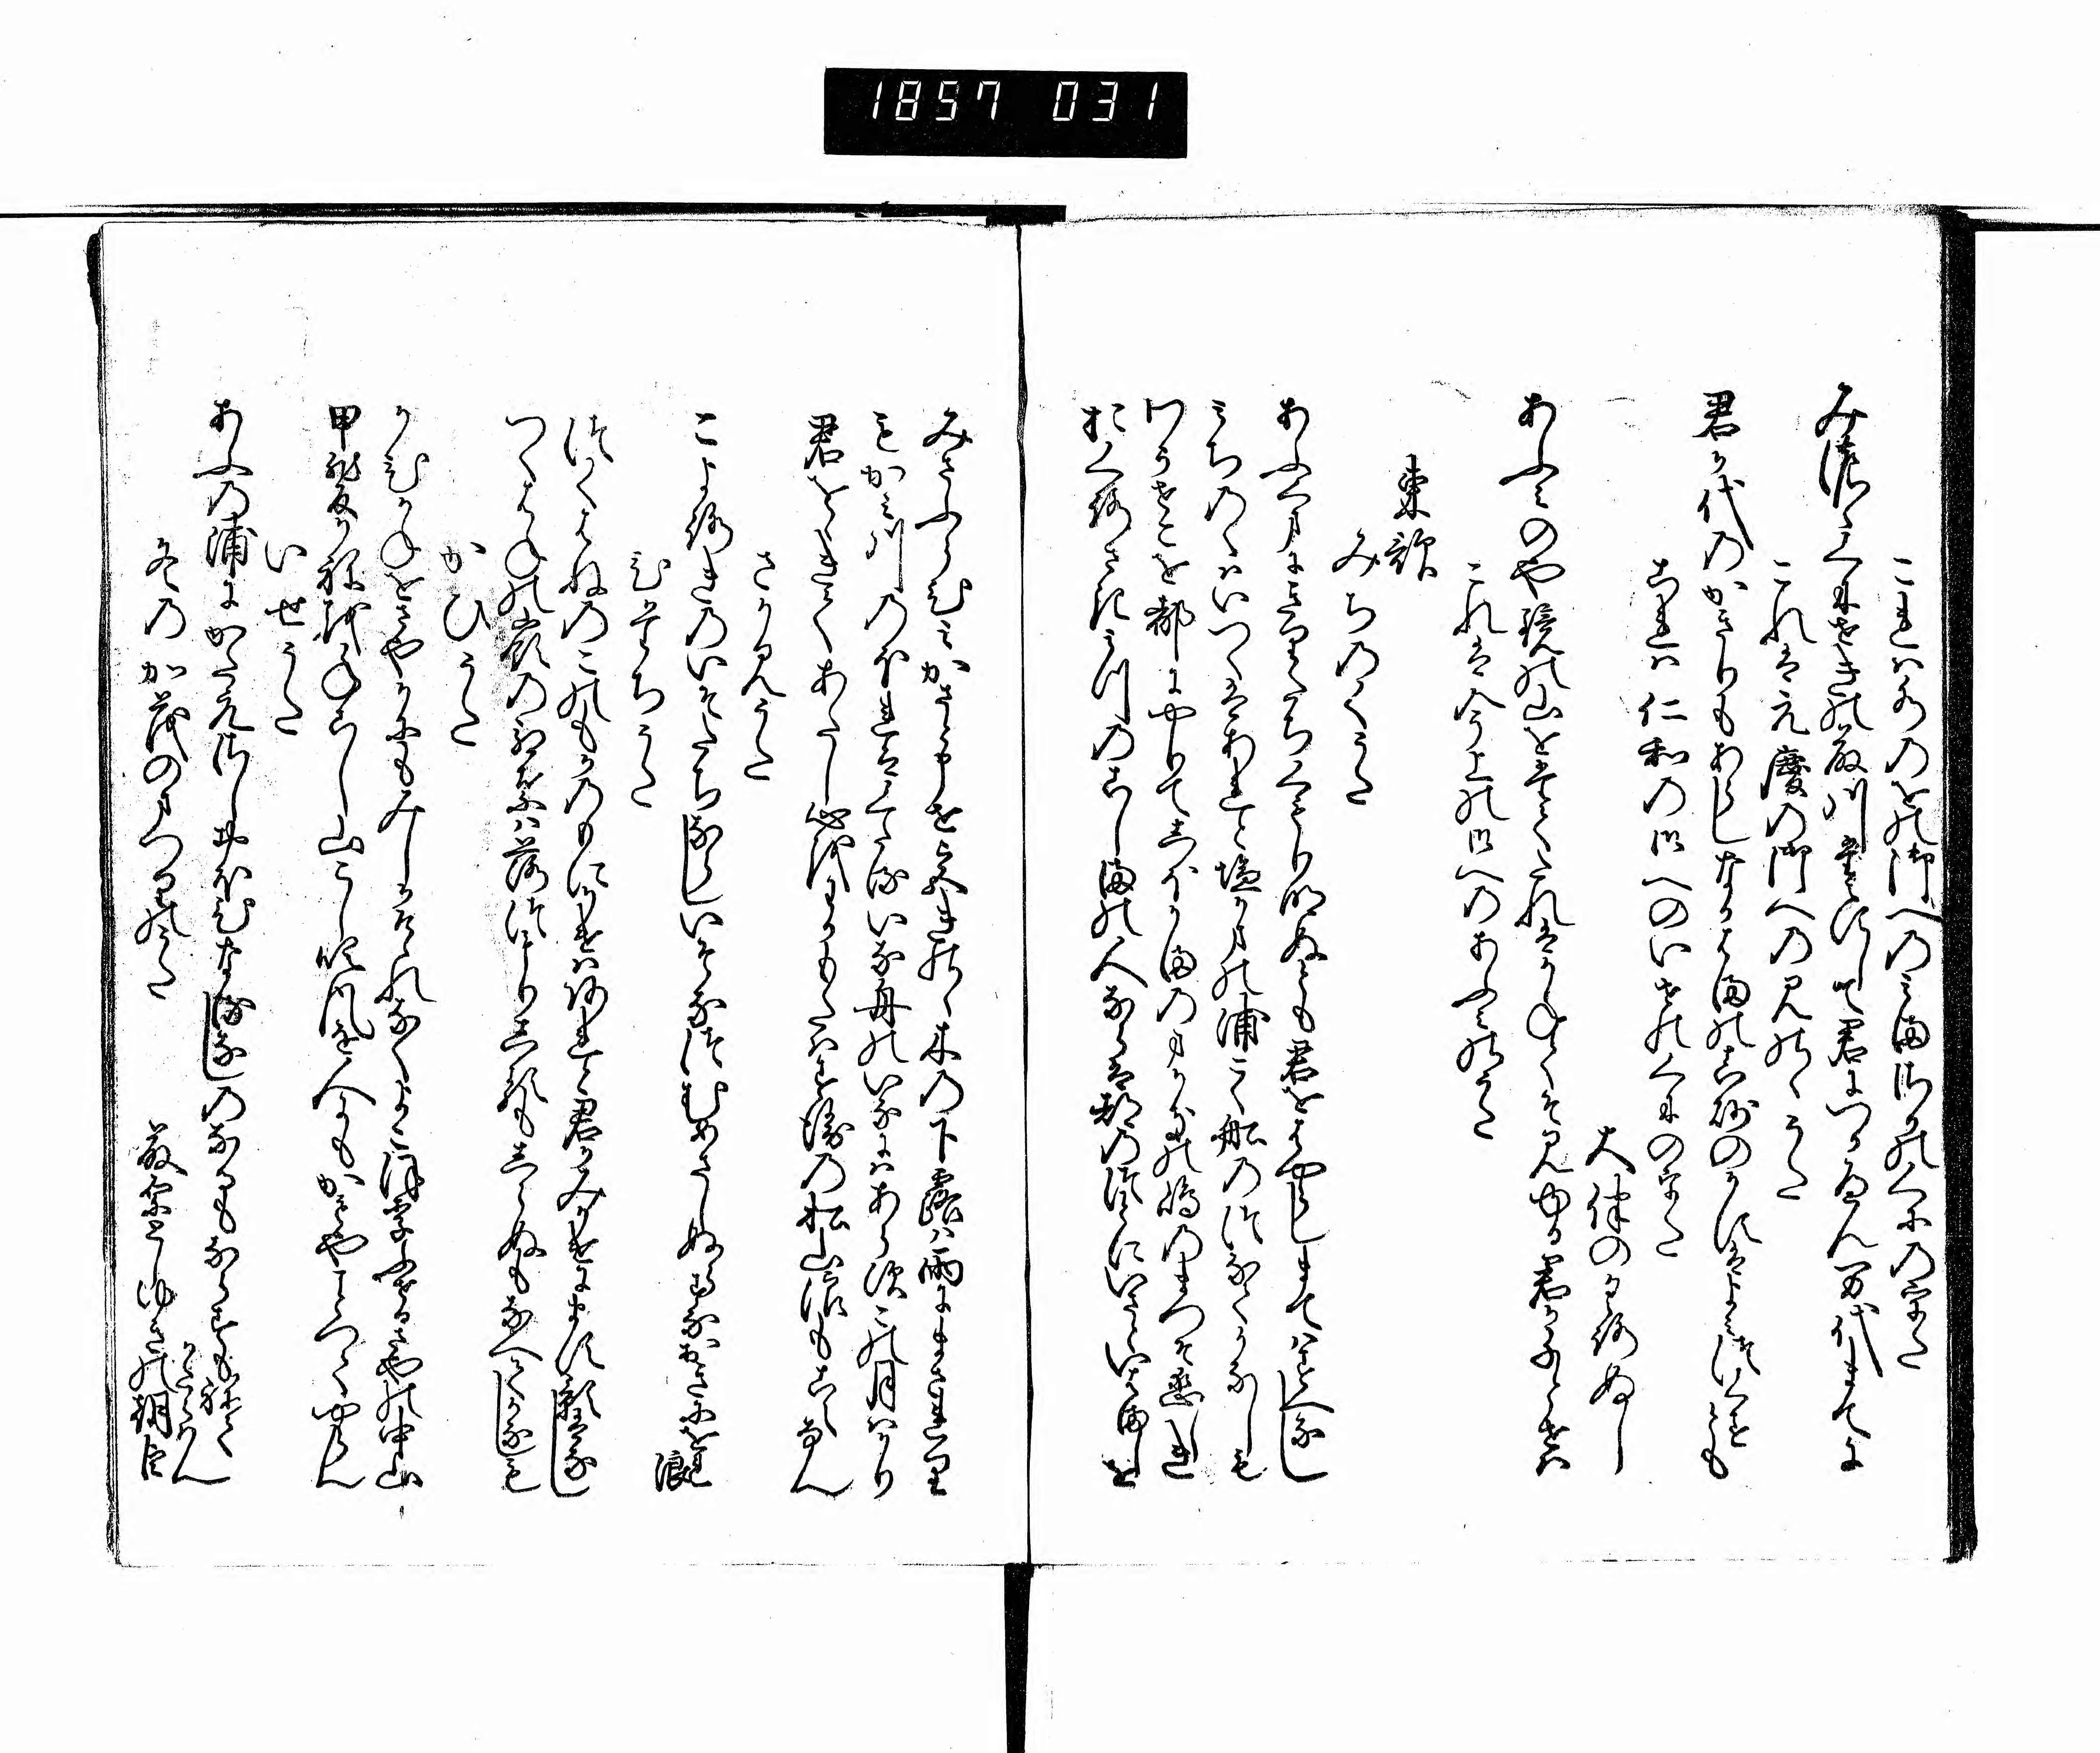 1857 031
これは水のをの御への三まさかのくにの哥
みのゝくにせきの藤川たえすして君につかへん万代まてに
これは元慶の御へのみのゝうた
君か代のかきりもあらしなかはまの真砂のかすはよみつくすとも
これは仁和の御へのいせのくにの哥
大伴のくろぬし
あふみのや鏡の山をたてたれはかねてそみゆる君かちとせは
これは今上の御へのあふみのうた
東歌
みちのくうた
あふくまに霧たちくもり明ぬとも君をはやらしまてはすへなし
みちのくはいつくはあれと塩かまの浦こく舟のつなてかなしも
わかせこを都にやりてしほかまのまかきの嶋のまつそ恋しき
おくろさきみつの小しまの人ならは都のつとにいさといはましを
みさふらひみかさと申せ宮きのゝ木の下露は雨にまされり
もかみ川のほれはくたるいな舟のいなにはあらす此月はかり
君をゝきてあたし心をわかもたはすゑの松山浪もこえなん
さかみうた
こよろきのいそたちならしいそなつむめさしぬらすなおきにをれ浪
ひたちうた
つくはねのこのもかのもに影はあれと君かみかけにます影はなし
つくはねの嶺の紅葉は落つもりしるもしらぬもなへてかなしも
かひうた
かひかねをさやにもみしかけゝれなくよこほりふせるさやの中山
甲斐かねをねこし山こし吹風を人にもかもやことつてやらん
いせうた
おふの浦にかたえさしおほひなるなしのなりもならすもねてかたらはん
冬の加茂のまつりのうた
藤原としゆきの朝臣